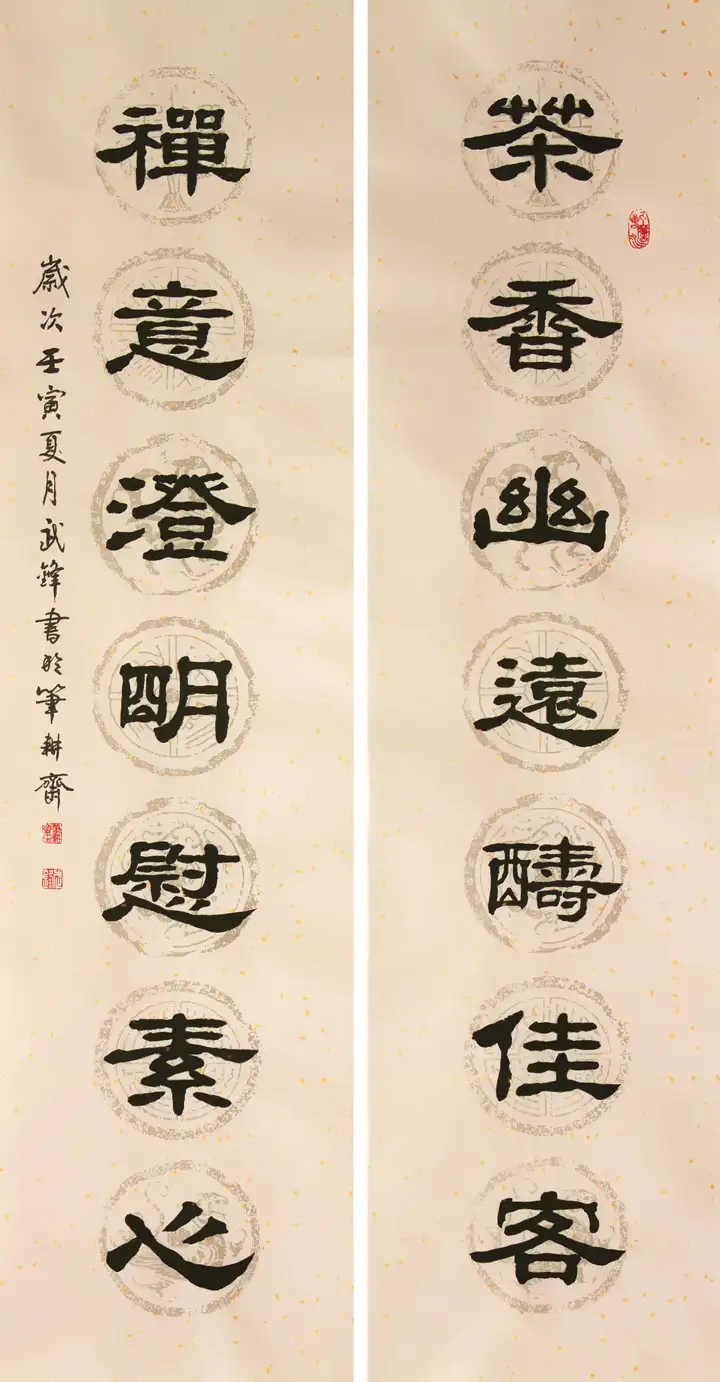 茶香幽遠醻佳客
禪意澄明慰素心
歲次壬寅夏月武鋒書於筆耕齋